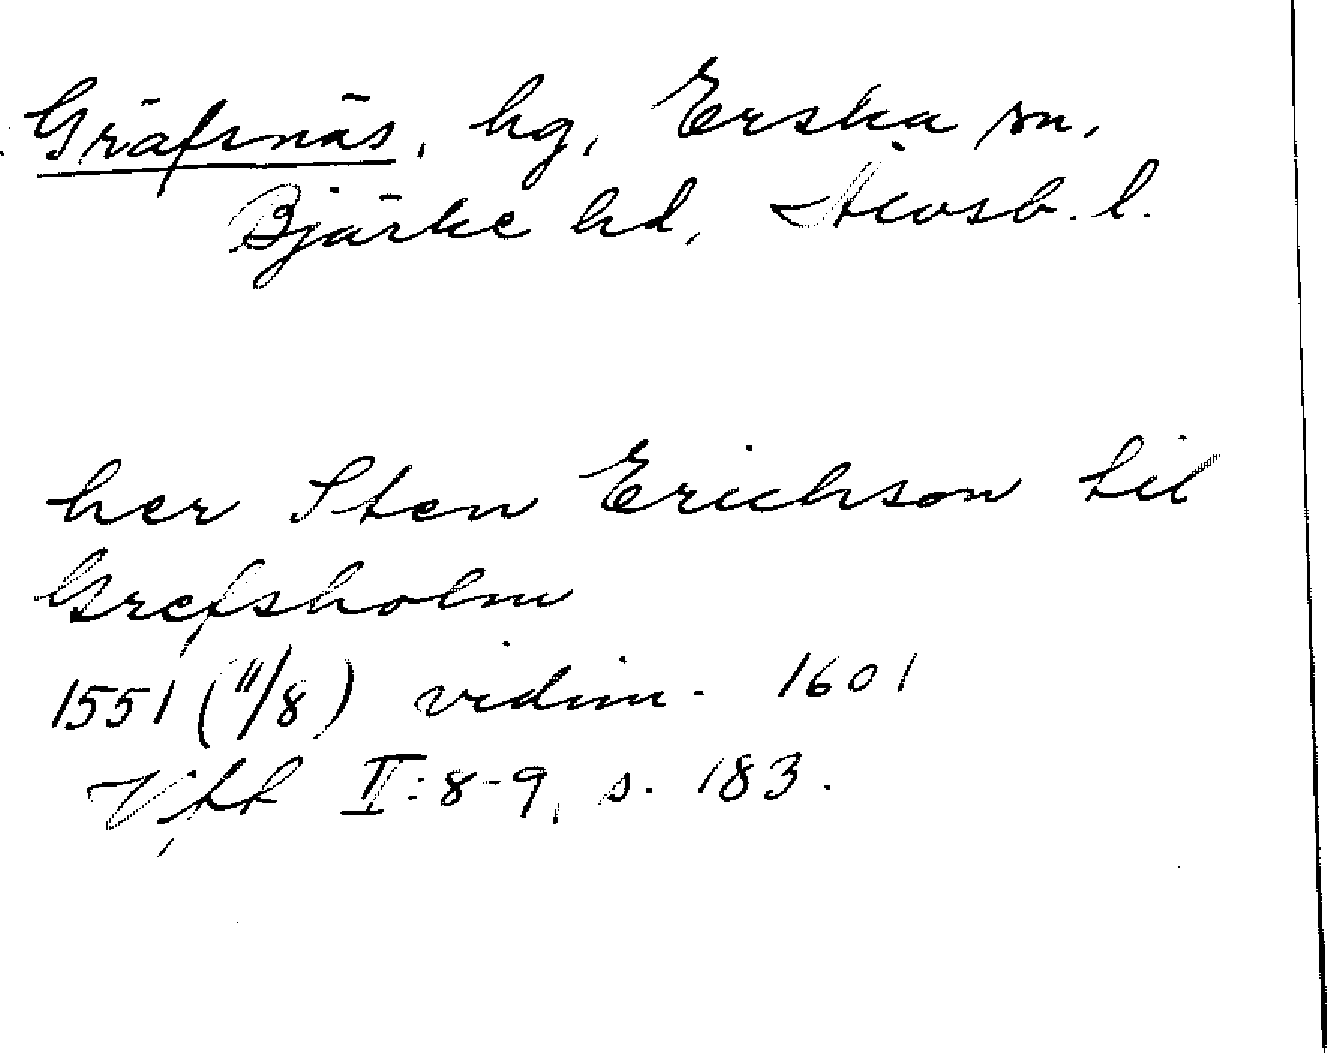 Gräfsnäs, hg, Erska sn,
Bjärke hd, Älvsb. l.
her Sten Erichson til
Grefsholm
1551 (11/8) vidim. 1601
Vfft II:8-9, s. 183.